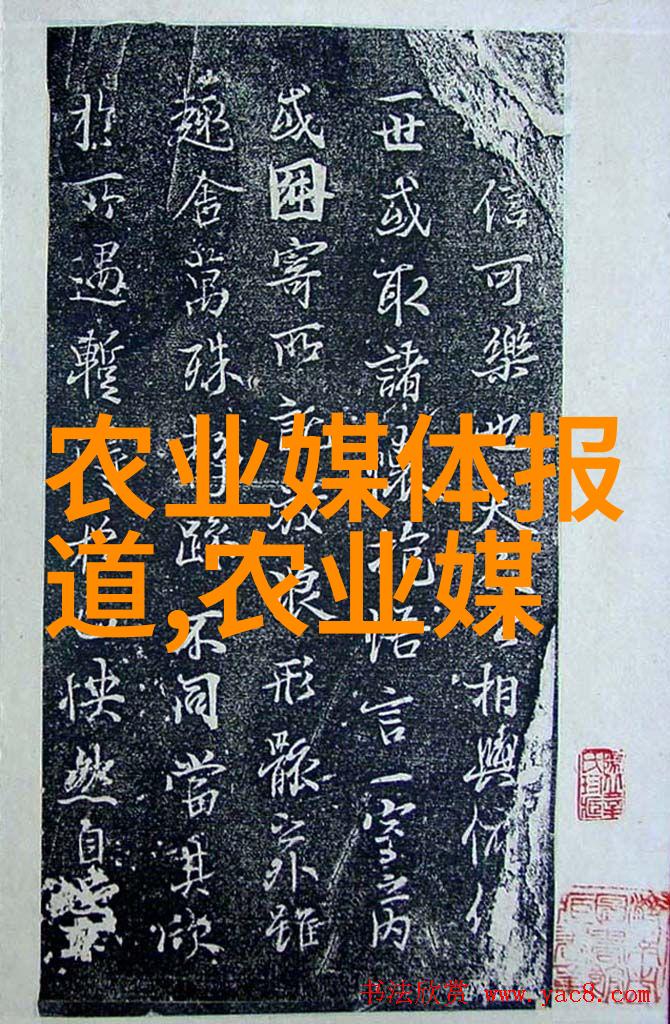 信可樂也夫相與俯仰
一世或取諸懷抱悟言一室之內
或因寄所託放浪形骸之外雖
趣舍萬殊靜躁不同當其欣
於所遇暫得於己怏然自
农业媒体报
道,农业媒
书法欣赏 www.yac8.com